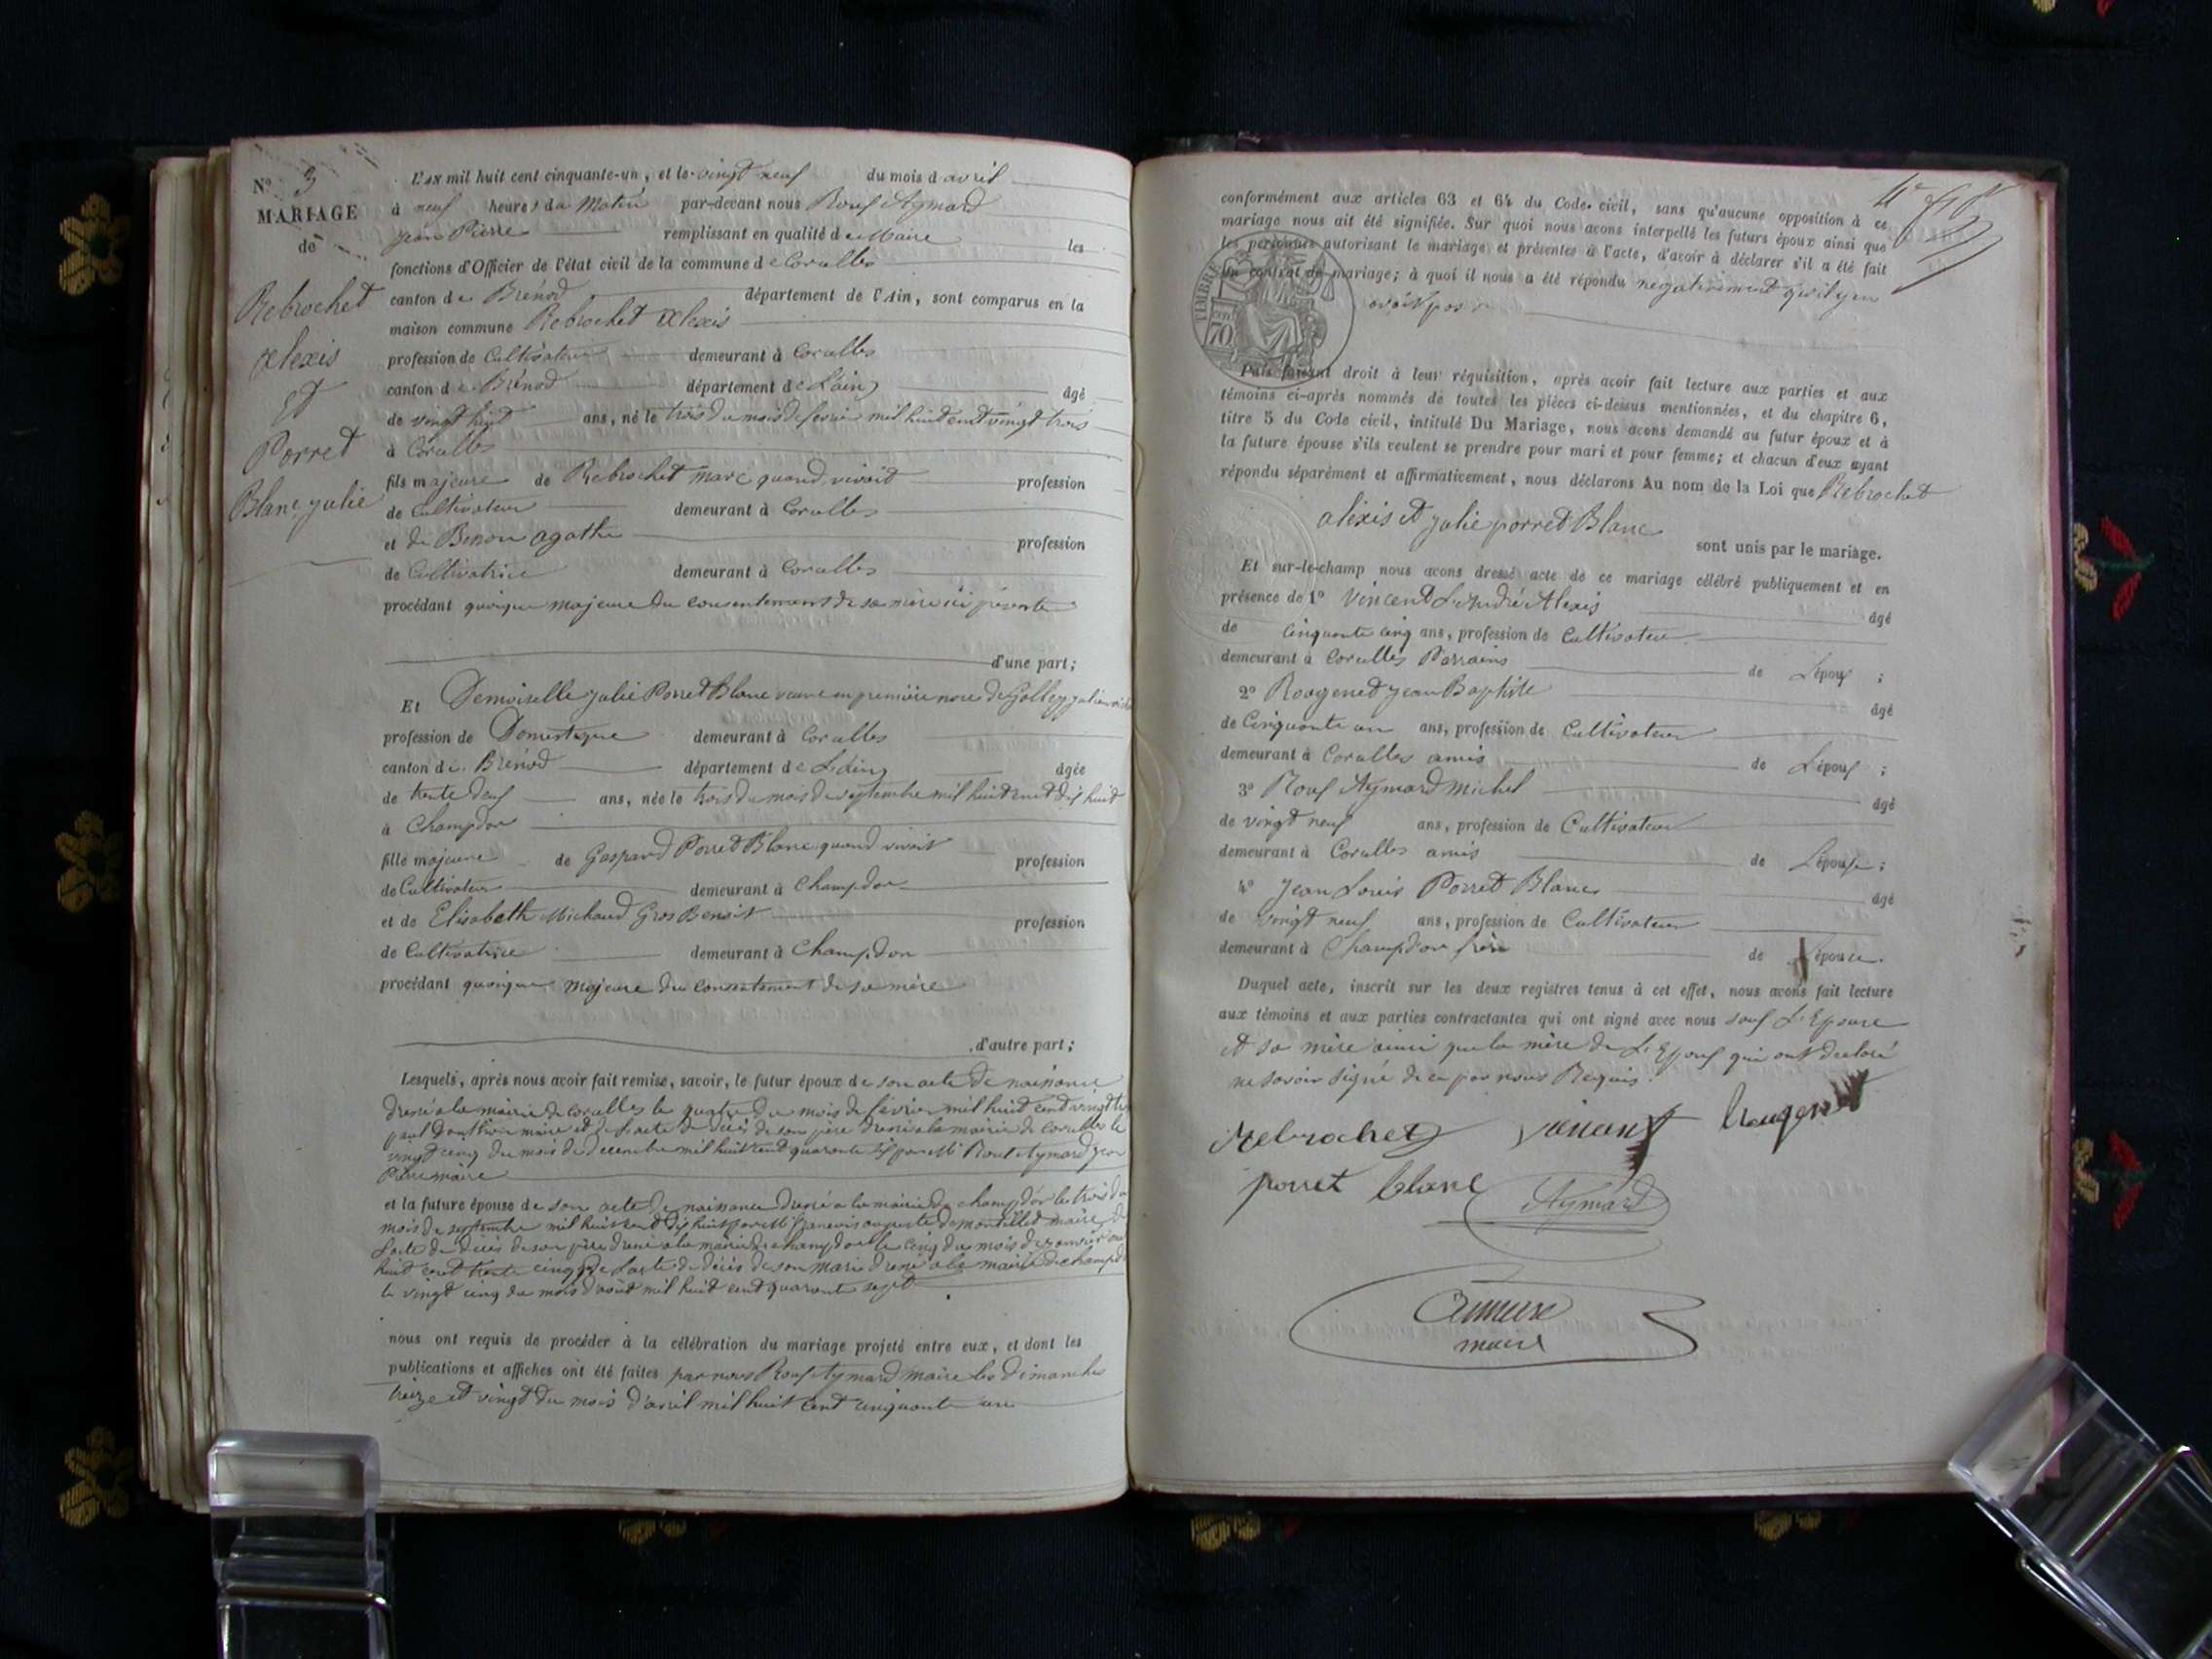 N° 3
MARIAGE
de
Rebrochet
Alexis
et
Porret
Blanc julie
L'AN mil huit cent cinquante-un, et le vingt neuf du mois d avril
à neuf heures du Matin par-devant nous Roux Aymard
jean Pierre remplissant en qualité de Maire les
fonctions d'Officier de l'état civil de la commune de Corcelles
canton de Brénod département de l'Ain, sont comparus en la
maison commune Rebrochet Alexis
profession de Cultivateur demeurant à Corcelles
canton de Brénod département de L'ain âgé
de vingt huit ans, né le trois du mois de fevrier mil huit cent vingt trois
à Corcelles
fils majeure de Rebrochet marc quand vivait profession
de Cultivateur demeurant à Corcelles
et de Benon agathe profession
de Cultivatrice demeurant à Corcelles
procédant quoique majeure du consentement de sa mère ici présente
d'une part;
Et Demoiselle julie Porret Blanc veuve en première noce de Golley julien
profession de Domestique demeurant à Corcelles
canton de Brénod département de L'ain âgée
de trente deux ans, née le trois du mois de septembre mil huit cent dix huit
à Champdor
fille majeure de Gaspard Porret Blanc quand vivait profession
de Cultivateur demeurant à Champdor
et de Elisabeth Michaud Gros Benoit profession
de Cultivatrice demeurant à Champdor
procédant quoique majeure du consentement de sa mère
d'autre part;
Lesquels, après nous avoir fait remise, savoir, le futur époux de son acte de naissance
dressé a la mairie de corcelles le quatre du mois de février mil huit cent vingt
maire et de l'acte de décès de son père dressé a la mairie de corcelles le
vingt cinq du mois de decembre mil huit cent quarante six par Mr Roux Aymard jean
Pierre maire
et la future épouse de son acte de naissance dressé a la mairie de champdor le trois du
mois de septembre mil huit cent dix huit par Mr auguste de montillet maire de
L'acte de décès de son père dressé a la mairie de champdor le cinq du mois de janvier mil
huit cent trente cinq de L'acte de décès de son mari dressé a la mairie de champdor
le vingt cinq du mois d'août mil huit cent quarante sept
nous ont requis de procéder à la célébration du mariage projeté entre eux, et dont les
publications et affiches ont été faites par nous Roux Aymard Maire les dimanches
treize et vingt du mois d'avril mil huit cent cinquante un
conformément aux articles 63 et 64 du Code civil, sans qu'aucune opposition à ce
mariage nous ait été signifiée. Sur quoi nous avons interpellé les futurs époux ainsi que
les personnes autorisant le mariage et présentes à l'acte, d'avoir à déclarer s'il a été fait
un contrat de mariage; à quoi il nous a été répondu negativement qu'il y en
avait pas
TIMBRE
70
Puis faisant droit à leur réquisition, après avoir fait lecture aux parties et aux
témoins ci-après nommés de toutes les pièces ci-dessus mentionnées, et du chapitre 6,
titre 5 du Code civil, intitulé Du Mariage, nous avons demandé au futur époux et à
la future épouse s'ils veulent se prendre pour mari et pour femme; et chacun d'eux ayant
répondu séparément et affirmativement, nous déclarons Au nom de la Loi que Rebrochet
alexis et julie porret Blanc
sont unis par le mariage.
Et sur-le-champ nous avons dressé acte de ce mariage célébré publiquement et en
présence de 1° Vincent L'André Alexis âgé
de cinquante cinq ans, profession de Cultivateur
demeurant à Corcelles Parrains de L'époux ;
2° Rougenet jean Baptiste âgé
de Cinquante un ans, profession de Cultivateur
demeurant à Corcelles amis de L'époux ;
3° Roux Aymard Michel âgé
de vingt neuf ans, profession de Cultivateur
demeurant à Corcelles amis de L'épouse ;
4° Jean Louis Porret Blanc âgé
de vingt neuf ans, profession de Cultivateur
demeurant à Champdor frère de L'épouse.
Duquel acte, inscrit sur les deux registres tenus à cet effet, nous avons fait lecture
aux témoins et aux parties contractantes qui ont signé avec nous sauf L'Epouse
et sa mère ainsi que la mère de L'Epoux qui ont declaré
ne savoir signé de ce par nous Requis.
Rebrochet vincent Rougenet
porret blanc Aymard
maire